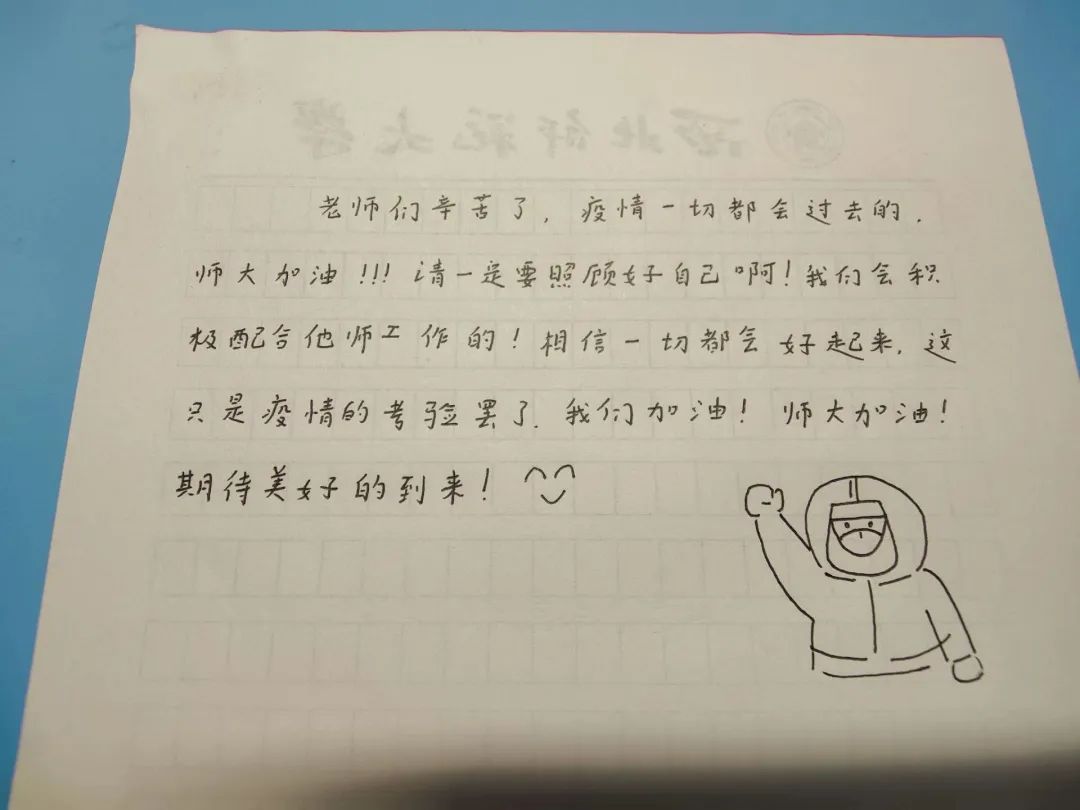 西北师范大学
老师们辛苦了，疫情一切都会过去的.
师大加油!!! 请一定要照顾好自己啊!我们会积
极配合他师工作的!相信一切都会好起来,这
只是疫情的考验罢了.我们加油! 师大加油!
期待美好的到来!